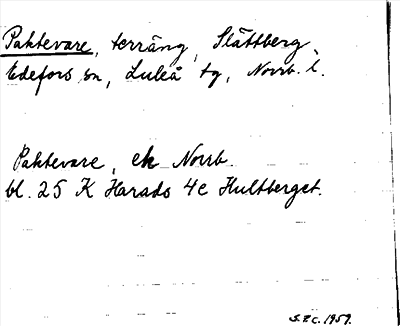 Paktevare, terräng, Slättberg,
Edefors sn, Luleå tg, Norrb. l.
Paktevare, ek Norrb.
bl. 25 K Harads 4e Hultberget.
S.Z.C. 1959.